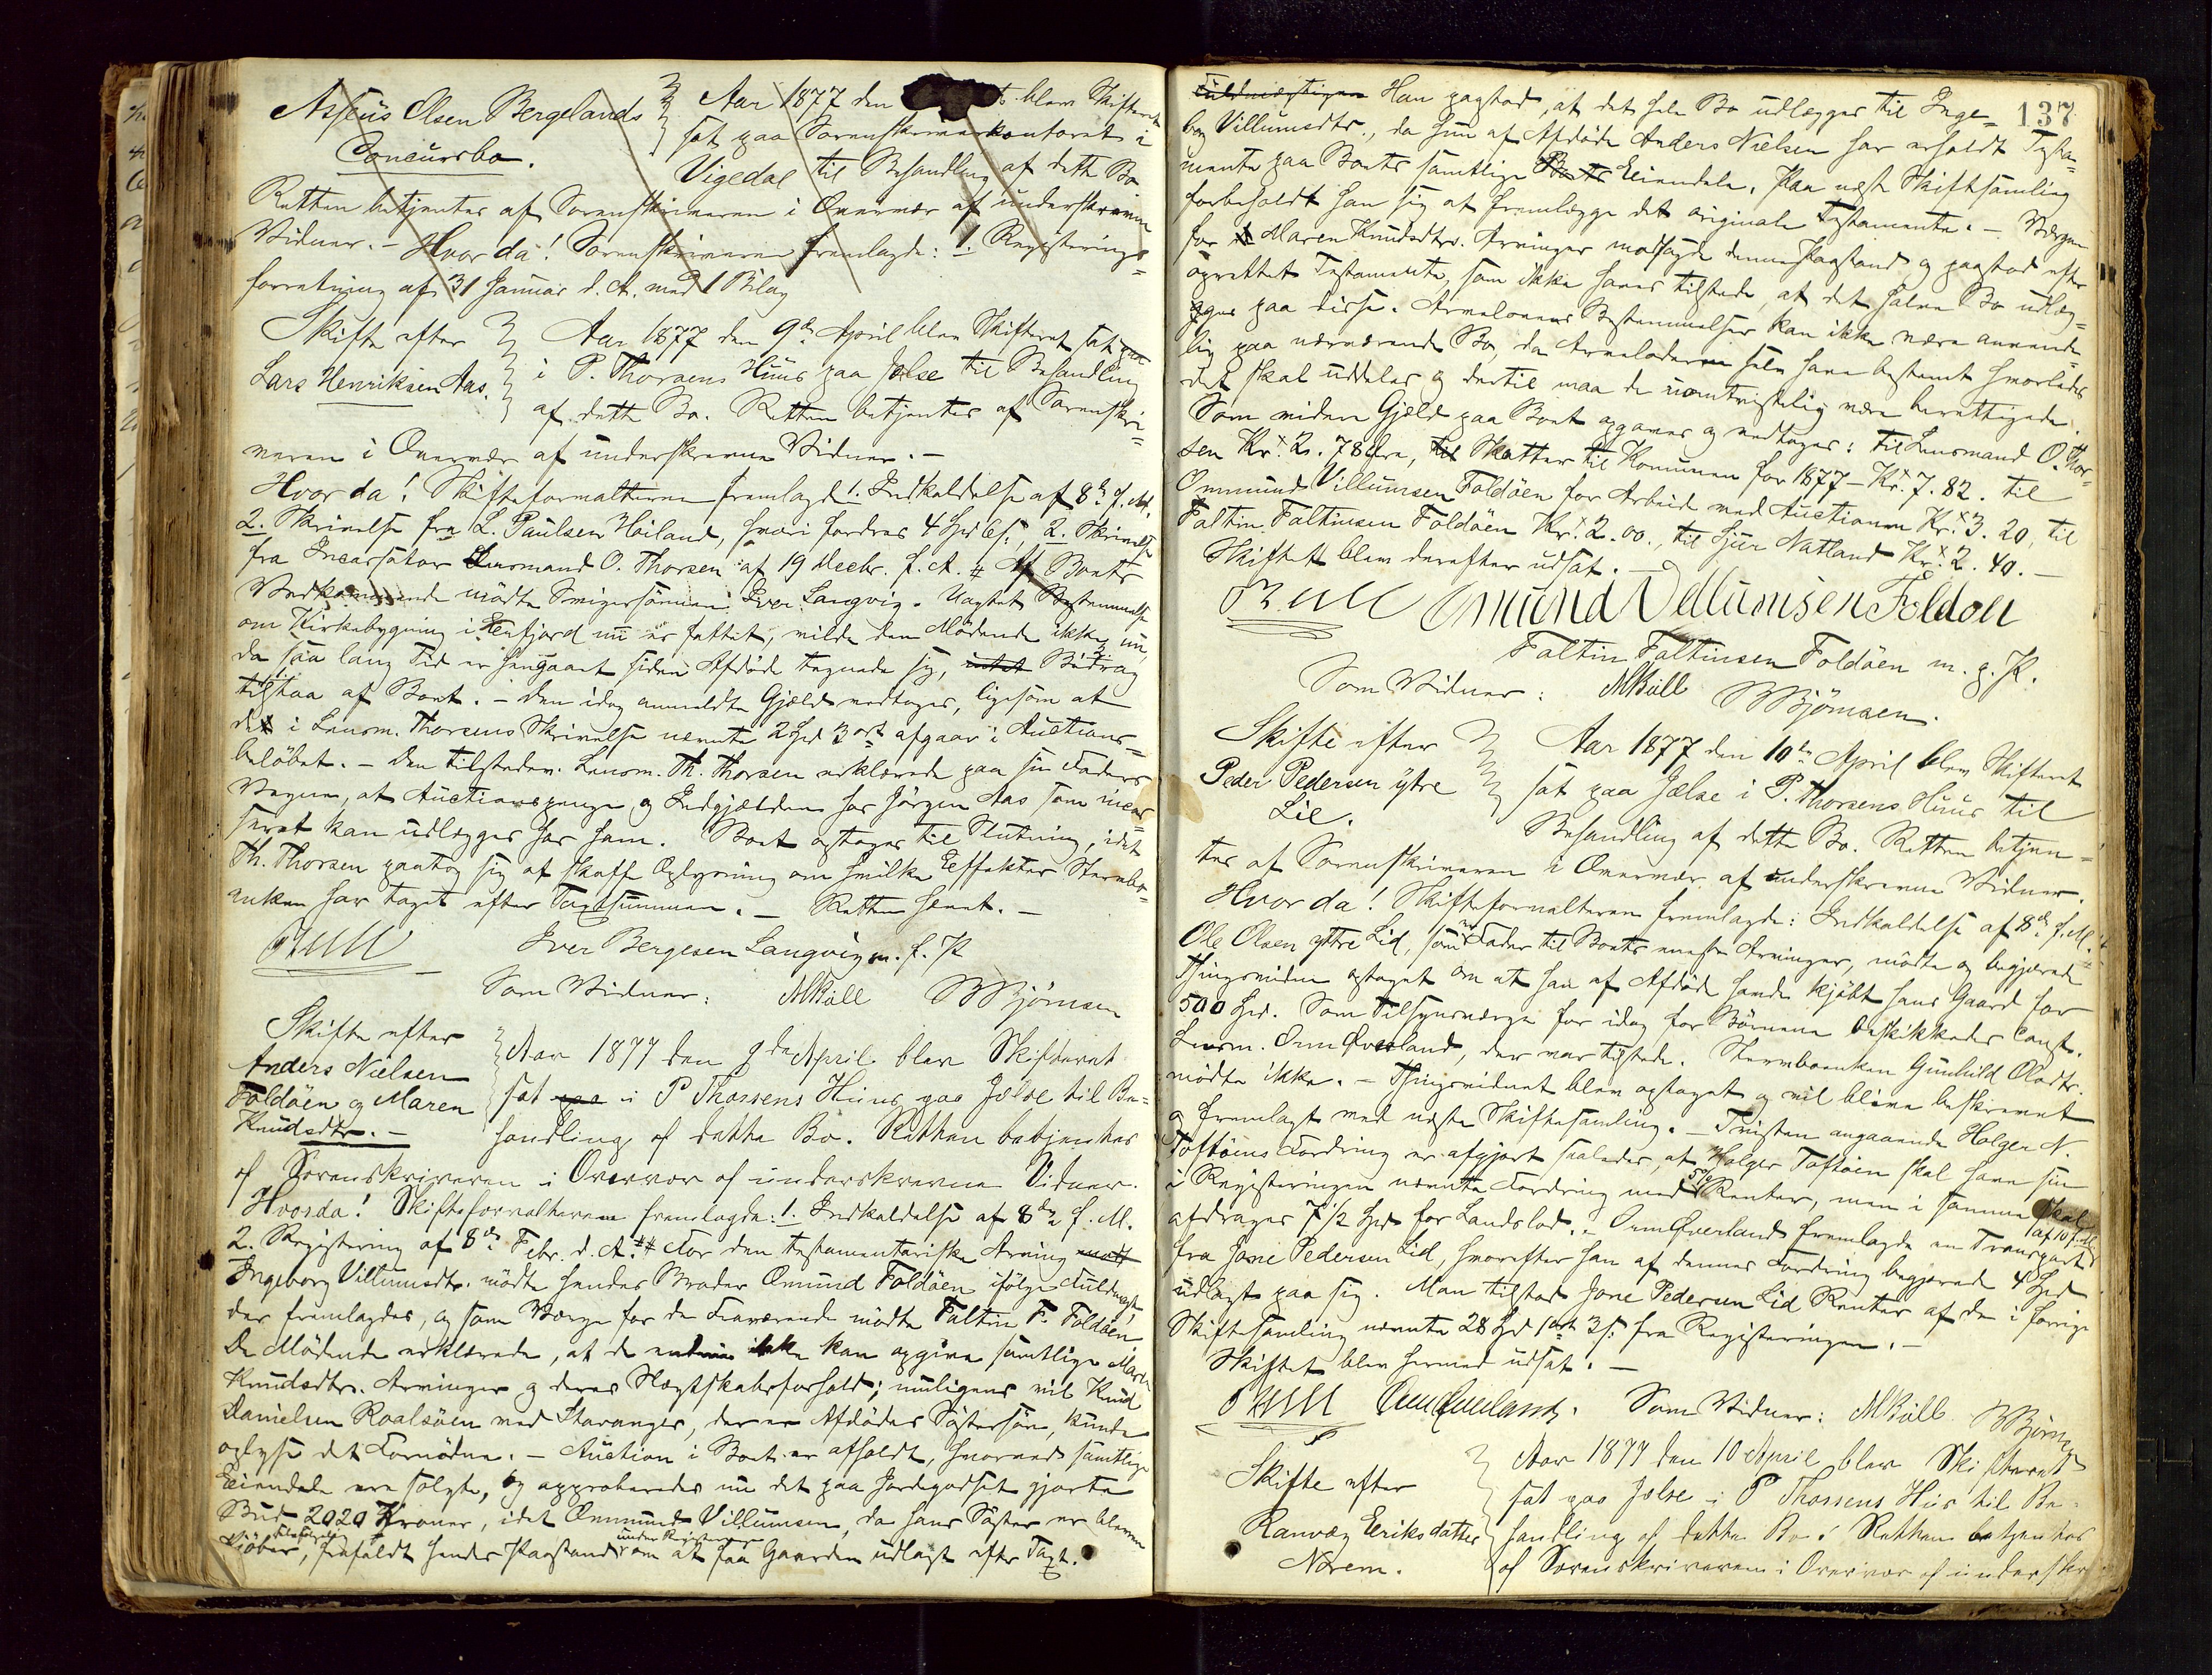 Asseus Olsen Bergelands
Concursbo.
Aar 1877 den blev Skifteret
sat paa Sorenskriverkontoret i
Vigedal til Behandling af dette Bo
Retten betjentes af Sorenskriveren i Overvær af underskrevne
Vidner. – Hvorda! Sorenskriveren fremlagde: 1. Registrerings=
forretning af 31 Januar d. A. med 1 Bilag
Skifte efter
Lars Henriksen Aas.
Aar 1877 den 9de April blev Skifteret sat paa
i P. Thorsens Huus paa Jelse til Behandling
af dette Bo. Retten betjentes af Sorenskri=
veren i Overvær af underskrevne Vidner. –
Hvorda! Skifteforvalteren fremlagde 1. Indkaldelse af 8de f. Md.
2. Skrivelse fra L. Paulsen Höiland, hvori fordres 4 Spd 6 s., 2. Skrivelse
fra Incassator Lensmand O. Thorsen af 19 Decbr. f. A. # Af Boets
Vedkommende mödte Svigersönnen Iver Langvig. Uagtet Bestemmelse
om Kirkebygning i nu er fattet, vilde den Mödende ikke nu,
da saa lang Tid er hengaaet siden Afdöde tegnede sig, intet Bidrag
tilstaa af Boet. – Den idag anmeldte Gjæld vedtoges, ligesom at
det i Lensm. Thorsens Skrivelse nævnte 2 Spd 3 ort afgaar i Auctions=
belöbet. – Den tilstedev. Lensm. Th. Thorsen erklærede paa sin Faders
Vegne, at Auctionspenge og Indgjælden hos Jörgen Aas, som incas=
seret kan udlægges hos ham. Boet optages til Slutning, idet
Th. Thorsen paatog sig at skaffe Oplysning om hvilke Effekter Stervbo=
enken har taget efter Taxtsummen. – Retten hævet. –
Iver Bergesen Langvig m. f. P.
Som Vidner: MBull BBjörnsen
Skifte efter
Anders Nielsen
Foldöen og Maren
Knudsdtr. –
Aar 1877 den 9de April blev Skifteret
sat paa i P Thorsens Huus paa Jelse til Be=
handling af dette Bo. Retten betjentes
af Sorenskriveren i Overvær af underskrevne Vidner.
Hvorda! Skifteforvalteren fremlagde: 1. Indkaldelse af 8de f. M.
2. Registrering af 8de Febr. d. A. ## For den testamentariske Arving
Ingeborg Villumsdtr. mödte hendes Broder Omund Foldöen ifölge Fuldmagt,
der fremlagdes, og som Værge for de Fraværende mödte Faltin F. Foldöen
De Mödende erklærede, at de ikke kan opgive samtlige Maren
Knudsdtrs. Arvinger og deres Slægtskabsforhold; muligens vil Knud
Danielsen Roalsöen ved Stavanger, der er Afdödes Söstersön, kunde
oplyse det Fornödne. – Auction i Boet er afholdt, hvorved samtlige
Eiendele ere solgte, og approberedes nu det paa Jordegodset gjorte
Bud 2020 Kroner, idet Ommund Villumsen, da hans Söster er bleven
Kjöber, frafaldt hendes Paastand under Registreringen om at faa Gaarden udlagt efter Taxt.
137
Fuldmægtigen Han paastod, at det hele Bo udlægges til Inge=
borg Villumsdtr., da hun af Afdöde Anders Nielsen har erholdt Testa=
mente paa Boets samtlige Boets Eiendele. Paa næste Skiftesamling
forbeholdt han sig at fremlægge det originale Testamente. – Værgen
for Maren Knudsdtrs. Arvinger modsagde denne Paastand og paastod efter
oprettet Testamente, som ikke haves tilstede, at det halve Bo udlæg=
ges paa disse. Arvelovens Bestemmelser kan ikke være anvende=
lig paa nærværende Bo, da Arveladerne selv have bestemt hvorledes
det skal uddeles og dertil maa de uomtvistelig være berettigede.
Som videre Gjæld paa Boet opgaves og vedtoges: til Lensmand O. Thor=
sen Kr. 2. 78 Öre, til Skatter til Komunen for 1877 – Kr. 7. 82. til
Ommund Villumsen Foldöen for Arbeide med Auctionen Kr. 3. 20, til
Faltin Faltinsen Foldöen Kr. 2. 00., til Sjur Natland Kr. 2. 40. –
Skiftet blev derefter udsat. –
Bull Omund Villumsen Foldöen
Faltin Faltinsen Foldöen m. p. P.
Som Vidner: MBull BBjörnsen.
Skifte efter
Peder Pedersen ytre
Lie.
Aar 1877 den 10de April blev Skifteret
sat paa Jælse i P. Thorsens Huus til
Behandling af dette Bo. Retten betjen=
tes af Sorenskriveren i Overvær af underskrevne Vidner.
Hvorda! Skifteforvalteren fremlagde: Indkaldelse af 8de f. M.
Ole Olsen yttre Lid, som er Fader til Boets eneste Arvinger, mödte og begjærede
Thingsvidne optaget om at han af Afdöde havde kjöbt hans Gaard for
500 Spd. Som Tilsynsværge for idag for Börnene beskikkedes Const.
Lensm. Örn Qveeland, der var tilstede. Stervboenken Gunhild Olsdtr.
mödte ikke. – Thingsvidnet blev optaget og vil blive beskrevet
og fremlagt ved næste Skiftesamling. – Tvisten angaaende Holger N.
Toftöens Fordring er afgjort saaledes, at Holger Toftöen skal have sin
i Registeringen nævnte Fordring med 5% Renter, men i samme skal
afdrages 7 1/2 Spd for Landslod. – fremlagde en Transport af 10 f. M.
fra Jone Pedersen Lid, hvorefter han af dennes Fordring begjærede 4 Spd
udlagt paa sig. Man tilstod Jone Pedersen Lid Renter af de i forrige
Skiftesamling nævnte 28 Spd 1 ort 3 s. fra Registeringen. –
Skiftet blev hermed udsat. –
Som Vidner: MBull BBjörnsen
Skifte efter
Ranvæg Eeriksdatter
Nærem.
Aar 1877 den 10 April blev Skifteret
sat paa Jelse i P Thorsens Hus til Be-
handling af dette Bo. Retten betjentes
af Sorenskriveren i Overvær af underskr